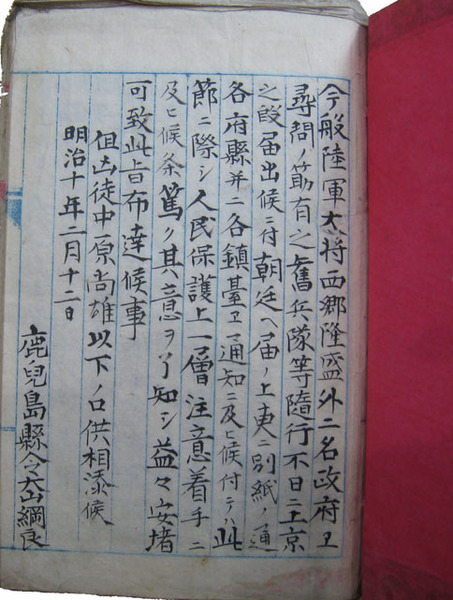 今般陸軍大将西郷隆盛外二名政府ヱ
尋問ノ筋有之舊兵隊等隨行不日ニ上京
之段届出候ニ付朝廷ヘ届ノ上更ニ別紙ノ通
各府縣并ニ各鎮臺ヱ通知ニ及ヒ候付テハ此
節ニ際シ人民保護上一層注意着手ニ
及ヒ候条篤ク其意ヲ了知シ益々安堵
可致此旨布達候事
但凶徒中原尚雄以下ノ口供相添候
明治十年二月十二日
鹿兒島縣令大山綱良